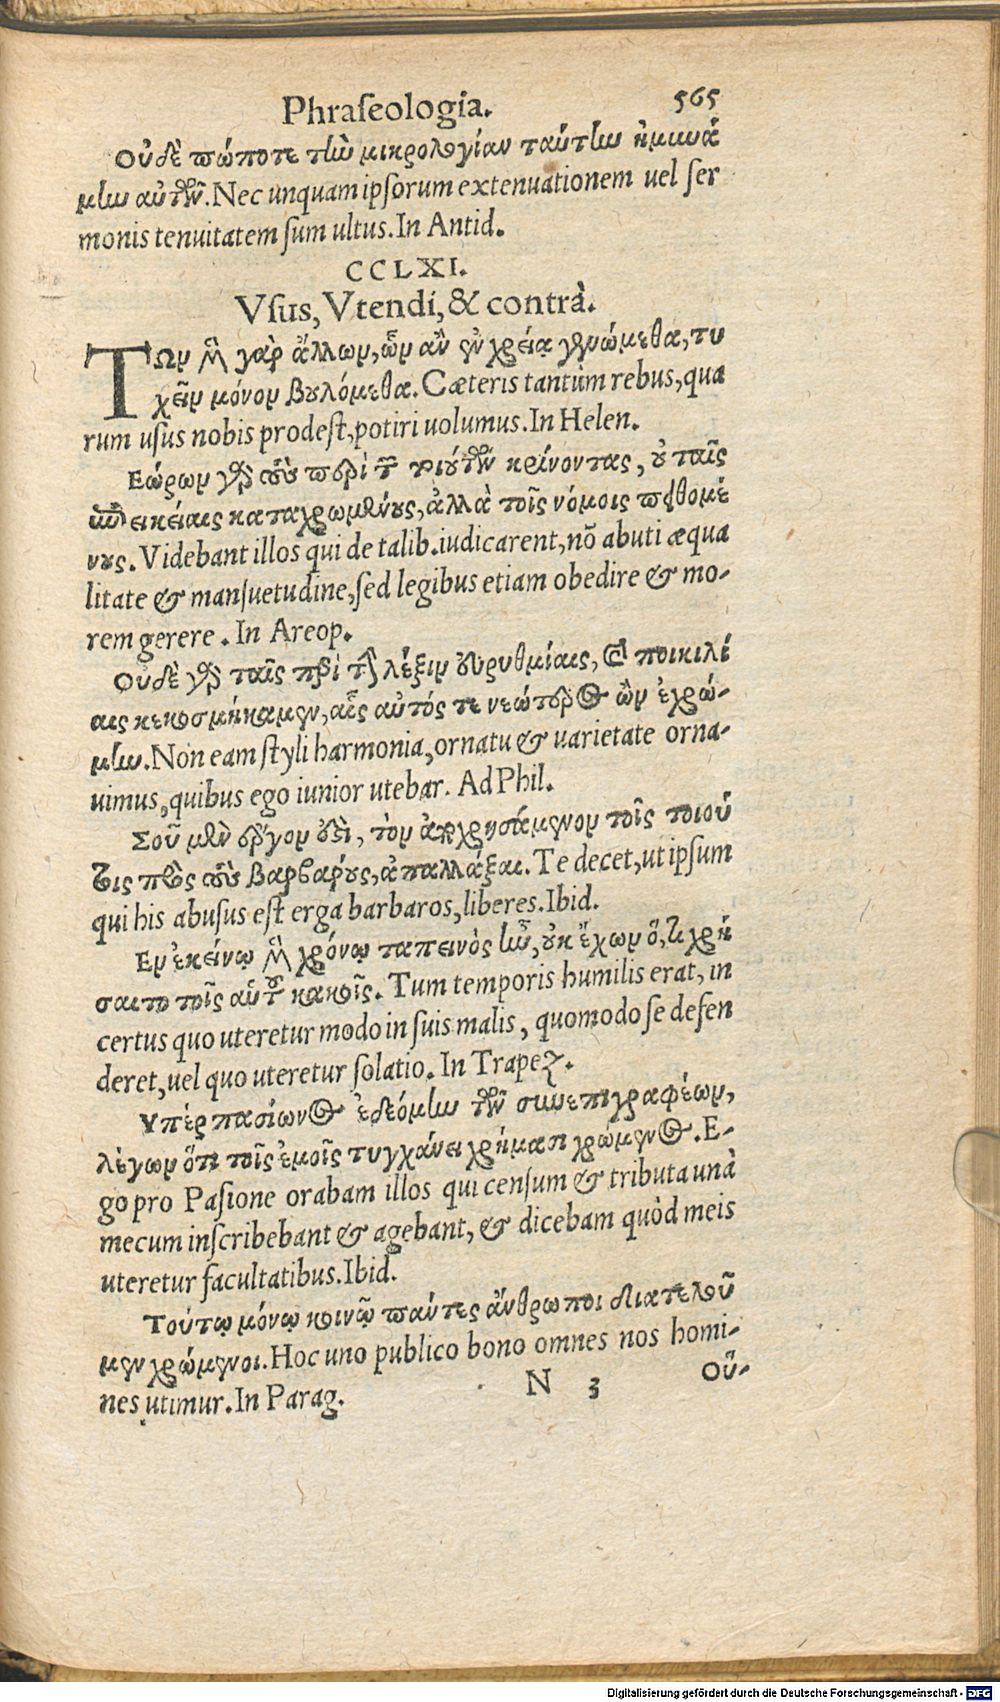 Phraſeologia. 565
Οὐδὲ πώποτε τὴν μικρολογίαν ταύτην ἠμυνά
μην αὐτῶν. Nec unquam ipſorum extenuationem uel ſer
monis tenuitatem ſum ultus. In Antid.
CCLXI.
Vſus, Vtendi, & contrà.
Τῶν μὲν γὰρ ἄλλων, ὧν ἂν ἐν χρείᾳ γενώμεθα, τυ
χεῖν μόνον βουλόμεθα. Cæteris tantùm rebus, qua
rum uſus nobis prodeſt, potiri uolumus. In Helen.
Εώρων γὰρ τοὺς περὶ τῶν τοιούτων κρίνοντας, οὐ ταῖς
ἐπιεικείαις καταχρωμένους, ἀλλὰ τοῖς νόμοις πειθομέ
νους. Videbant illos qui de talib. iudicarent, nō abuti æqua
litate & manſuetudine, ſed legibus etiam obedire & mo-
rem gerere. In Areop.
Οὐδὲ γὰρ ταῖς περὶ τὴν λέξιν εὐρυθμίαις, καὶ ποικιλί
αις κεκοσμήκαμεν, αἷς αὐτός τε νεώτερος ὢν ἐχρώ-
μην. Non eam ſtyli harmonia, ornatu & uarietate orna-
uimus, quibus ego iunior utebar. Ad Phil.
Σοῦ μὲν ἔργον ἐστὶ, τὸν ἀποχρησάμενον τοῖς τοιού
τοις πρὸς τοὺς βαρβάρους, ἀπαλλάξαι. Te decet, ut ipſum
qui his abuſus eſt erga barbaros, liberes. Ibid.
Εν ἐκείνῳ μὲν χρόνῳ ταπεινὸς ἦν, οὐκ ἔχων ὅ,τι χρή
σαιτο τοῖς αὑτοῦ κακοῖς. Tum temporis humilis erat, in
certus quo uteretur modo in ſuis malis, quomodo ſe defen
deret, uel quo uteretur ſolatio. In Trapez.
Υπὲρ πασίωνος ἐδεόμην τῶν συνεπιγραφέων,
λέγων ὅτι τοῖς ἐμοῖς τυγχάνει χρήμασι χρώμενος. E-
go pro Paſione orabam illos qui cenſum & tributa unà
mecum inſcribebant & agebant, & dicebam quòd meis
uteretur facultatibus. Ibid.
Τούτῳ μόνῳ κοινῷ πάντες ἄνθρωποι διατελοῦ
μεν χρώμενοι. Hoc uno publico bono omnes nos homi-
nes utimur. In Parag.
N 3 Οὔ-
Digitalisierung gefördert durch die Deutsche Forschungsgemeinschaft - DFG